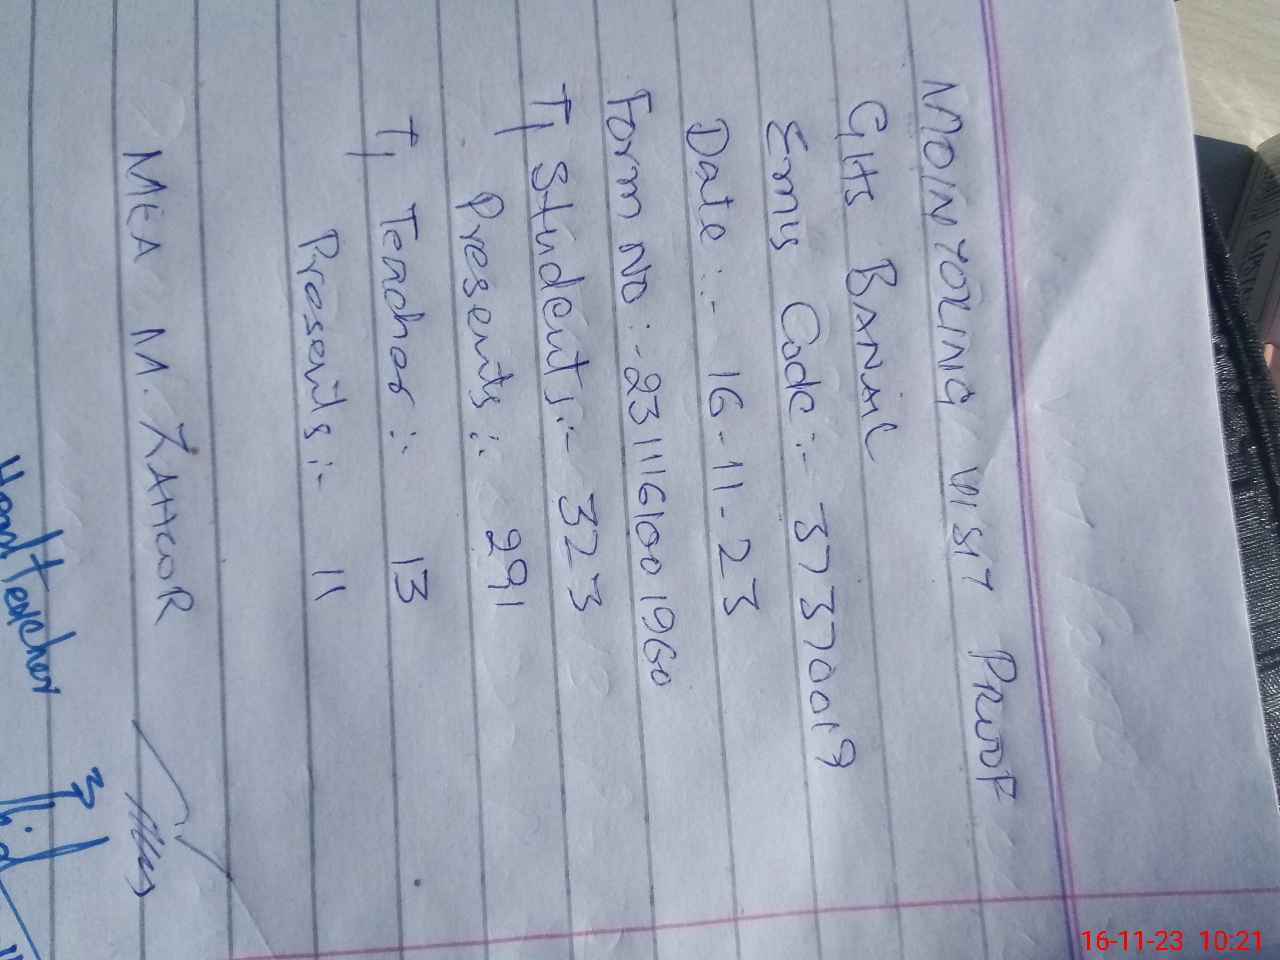 MOINTORING VISIT PROOF
GHS BANAIL
Emis Code :- 37370019
Date :- 16-11-23
Form No :- 231116100 1960
T/ Students :- 323
Presents :- 291
T/ Teacher :- 13
Presents :- 11
MEA M. ZAHOOR
Head Teacher
16-11-23 10:21